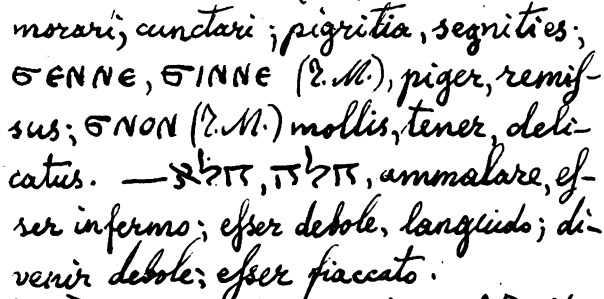 morari, cunctari ; pigritia, segnities ;
ϭⲉⲛⲛⲉ, ϭⲓⲛⲛⲉ (T. M.), piger, remiſ-
sus ; ϭⲛⲟⲛ (T. M.) mollis, tener, deli-
catus. — חלא, חלה, ammalare, eſ-
ser infermo ; eſser debole, languido ; di-
venir debole ; eſser fiaccato .